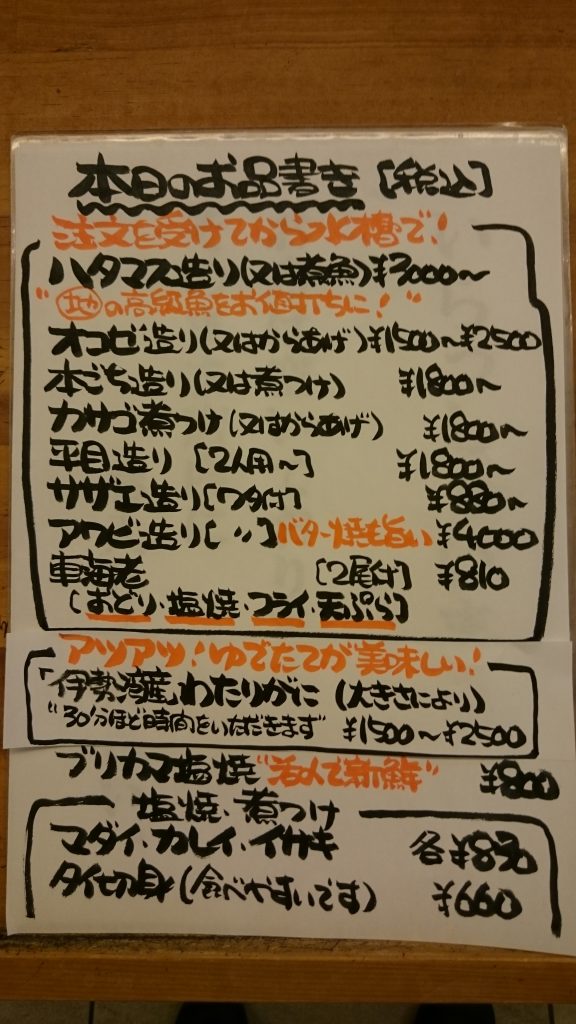 本日のお品書き [税込]
注文を受けてから水槽で!
ハタマス造り(又は煮魚) ¥3000〜
"㊞の高級魚をお値打ちに!"
オコゼ造り(又はからあげ) ¥1500〜¥2500
本ごち造り(又は煮つけ) ¥1800〜
カサゴ煮つけ(又はからあげ) ¥1800〜
平目造り [2人用〜] ¥1800〜
サザエ造り[ワタ付] ¥880〜
アワビ造り[〃]バター焼も旨い ¥4000
車海老 [2尾付] ¥810
[おどり・塩焼・フライ・天ぷら]
アツアツ!ゆでたてが美味しい!
「伊勢湾産」わたりがに (大きさにより)
"30分ほど時間をいただきます" ¥1500〜¥2500
ブリカマ塩焼 "活〆で新鮮" ¥800
塩焼・煮つけ
マダイ・カレイ・イサキ 各¥830
タイ切身(食べやすいです) ¥660